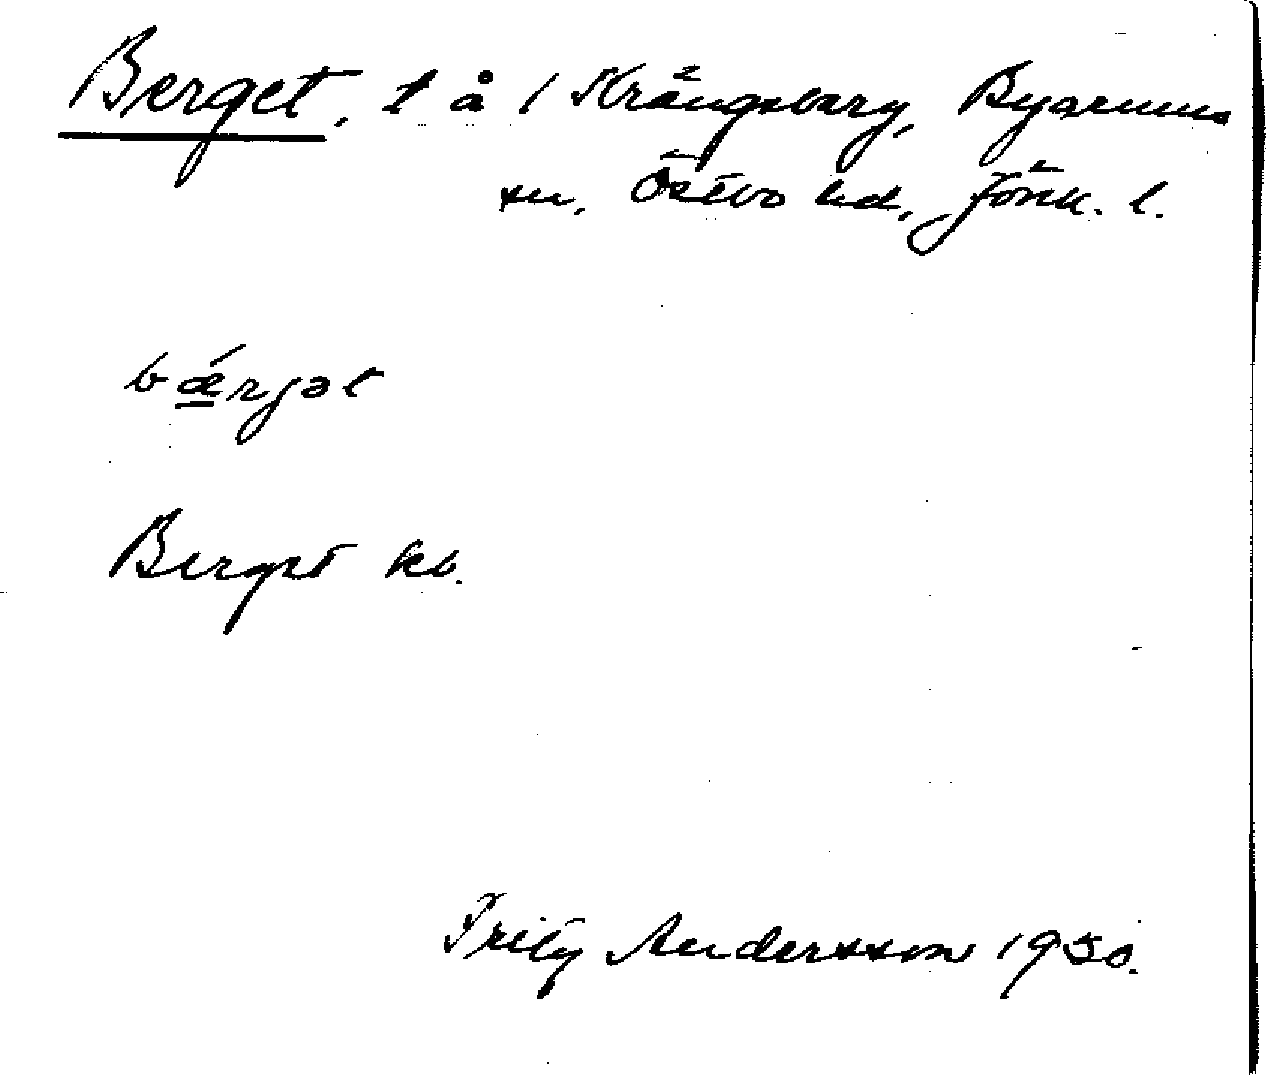 Berget, t å / Krängsberg, Bjarums
sn, Östbo hd, Jönk. l.
bǽrjət
Berget kb.
Fritz Andersson 1930.